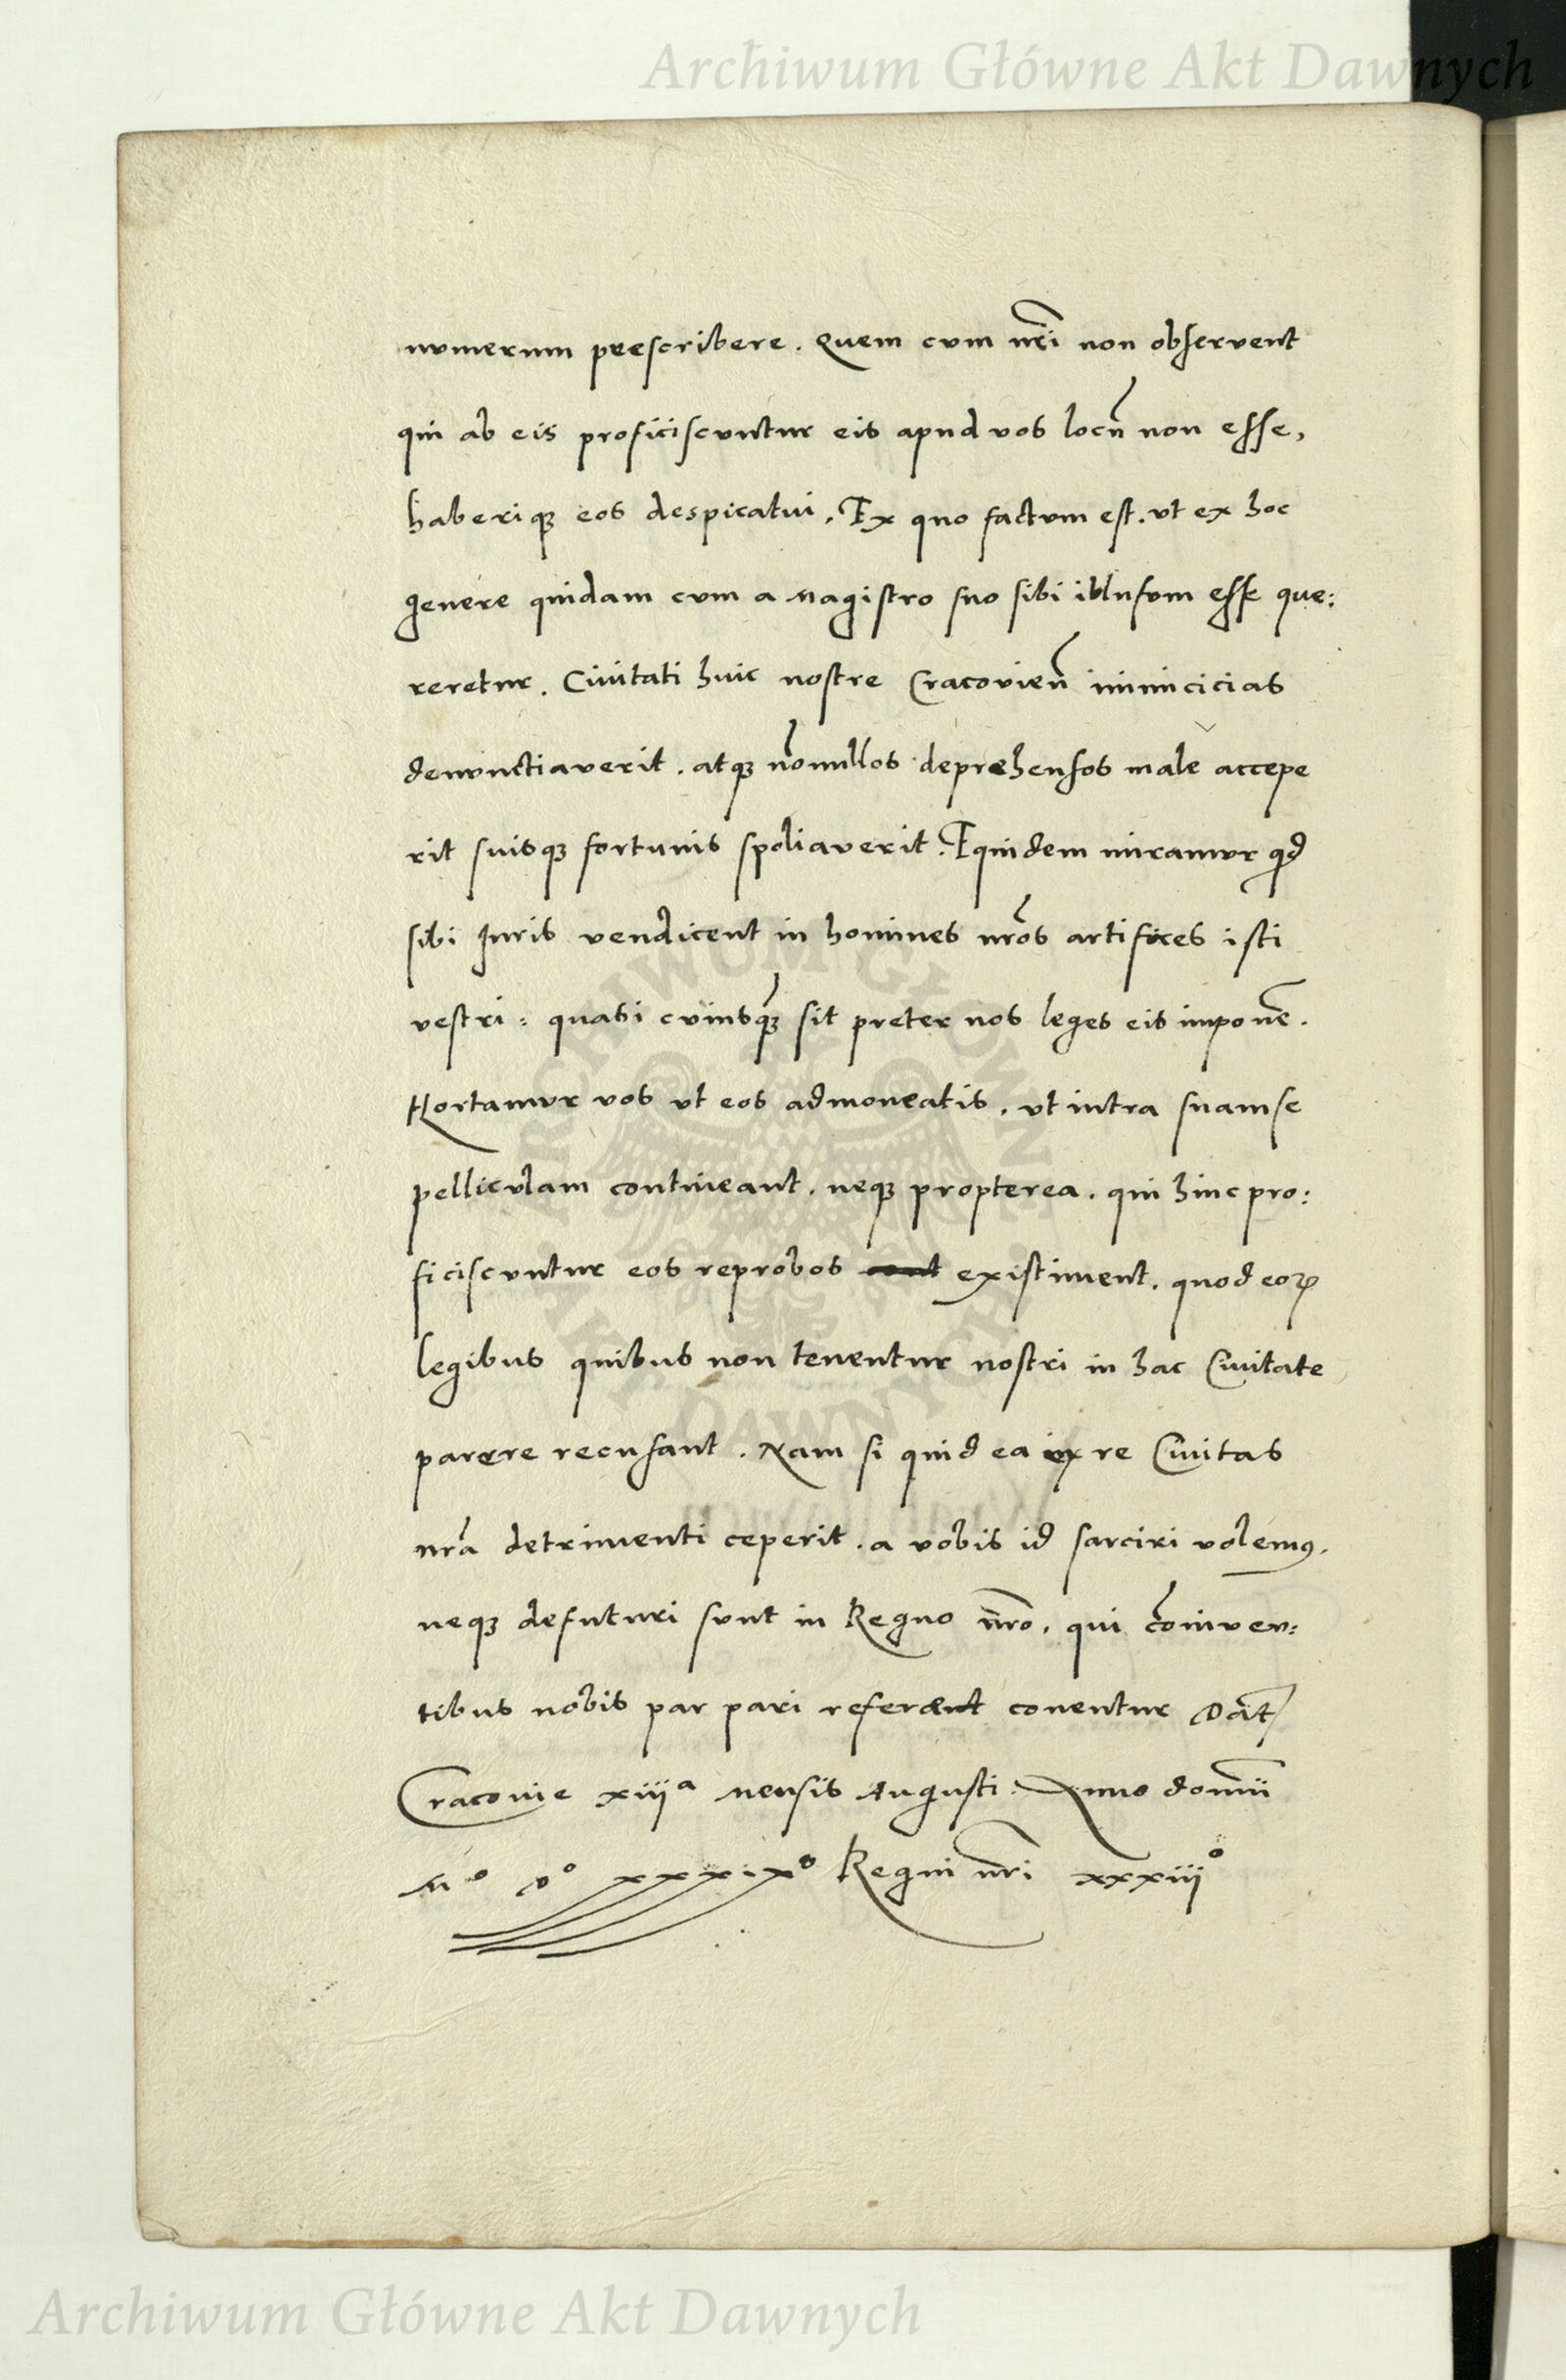 Archiwum Główne Akt Dawnych
numerum prescribere. Quem cum nr̃i non observent
qui ab eis proficiscuntur eis apud vos locũ non esse,
haberiqꝫ eos despicatui. Ex quo factum est. ut ex hoc
genere quidam cum a Magistro suo sibi illusum esse que:
reretur. Civitati huic nostre Cracovieñ inimicicias
denunctiaverit. atqꝫ nõnullos deprehensos male accepe
rit suisqꝫ fortunis spoliaverit. Equidem miramur qd
sibi Iuris vendicent in homines nr̃os artifices isti
vestri: quasi cuiusqꝫ sit preter nos leges eis imponẽ.
Hortamur vos ut eos admoneatis. ut intra suam se
pelliculam contineant. neqꝫ propterea. qui hinc pro:
ficiscuntur eos reprobos existiment. quod eoꝝ
legibus quibus non tenentur nostri in hac Civitate
parere recusant. Nam si quid ea ex re Civitas
nr̃a detrimenti ceperit. a vobis id sarciri volemꝰ.
neqꝫ defuturi sunt in Regno nr̃o. qui cõniven:
tibus nobis par pari referant conentur Dat̃
Cracovie xiijª Mensis Augusti. Anno domĩi
Mº Dº xxxixº Regni nr̃i xxxiijº
Archiwum Główne Akt Dawnych